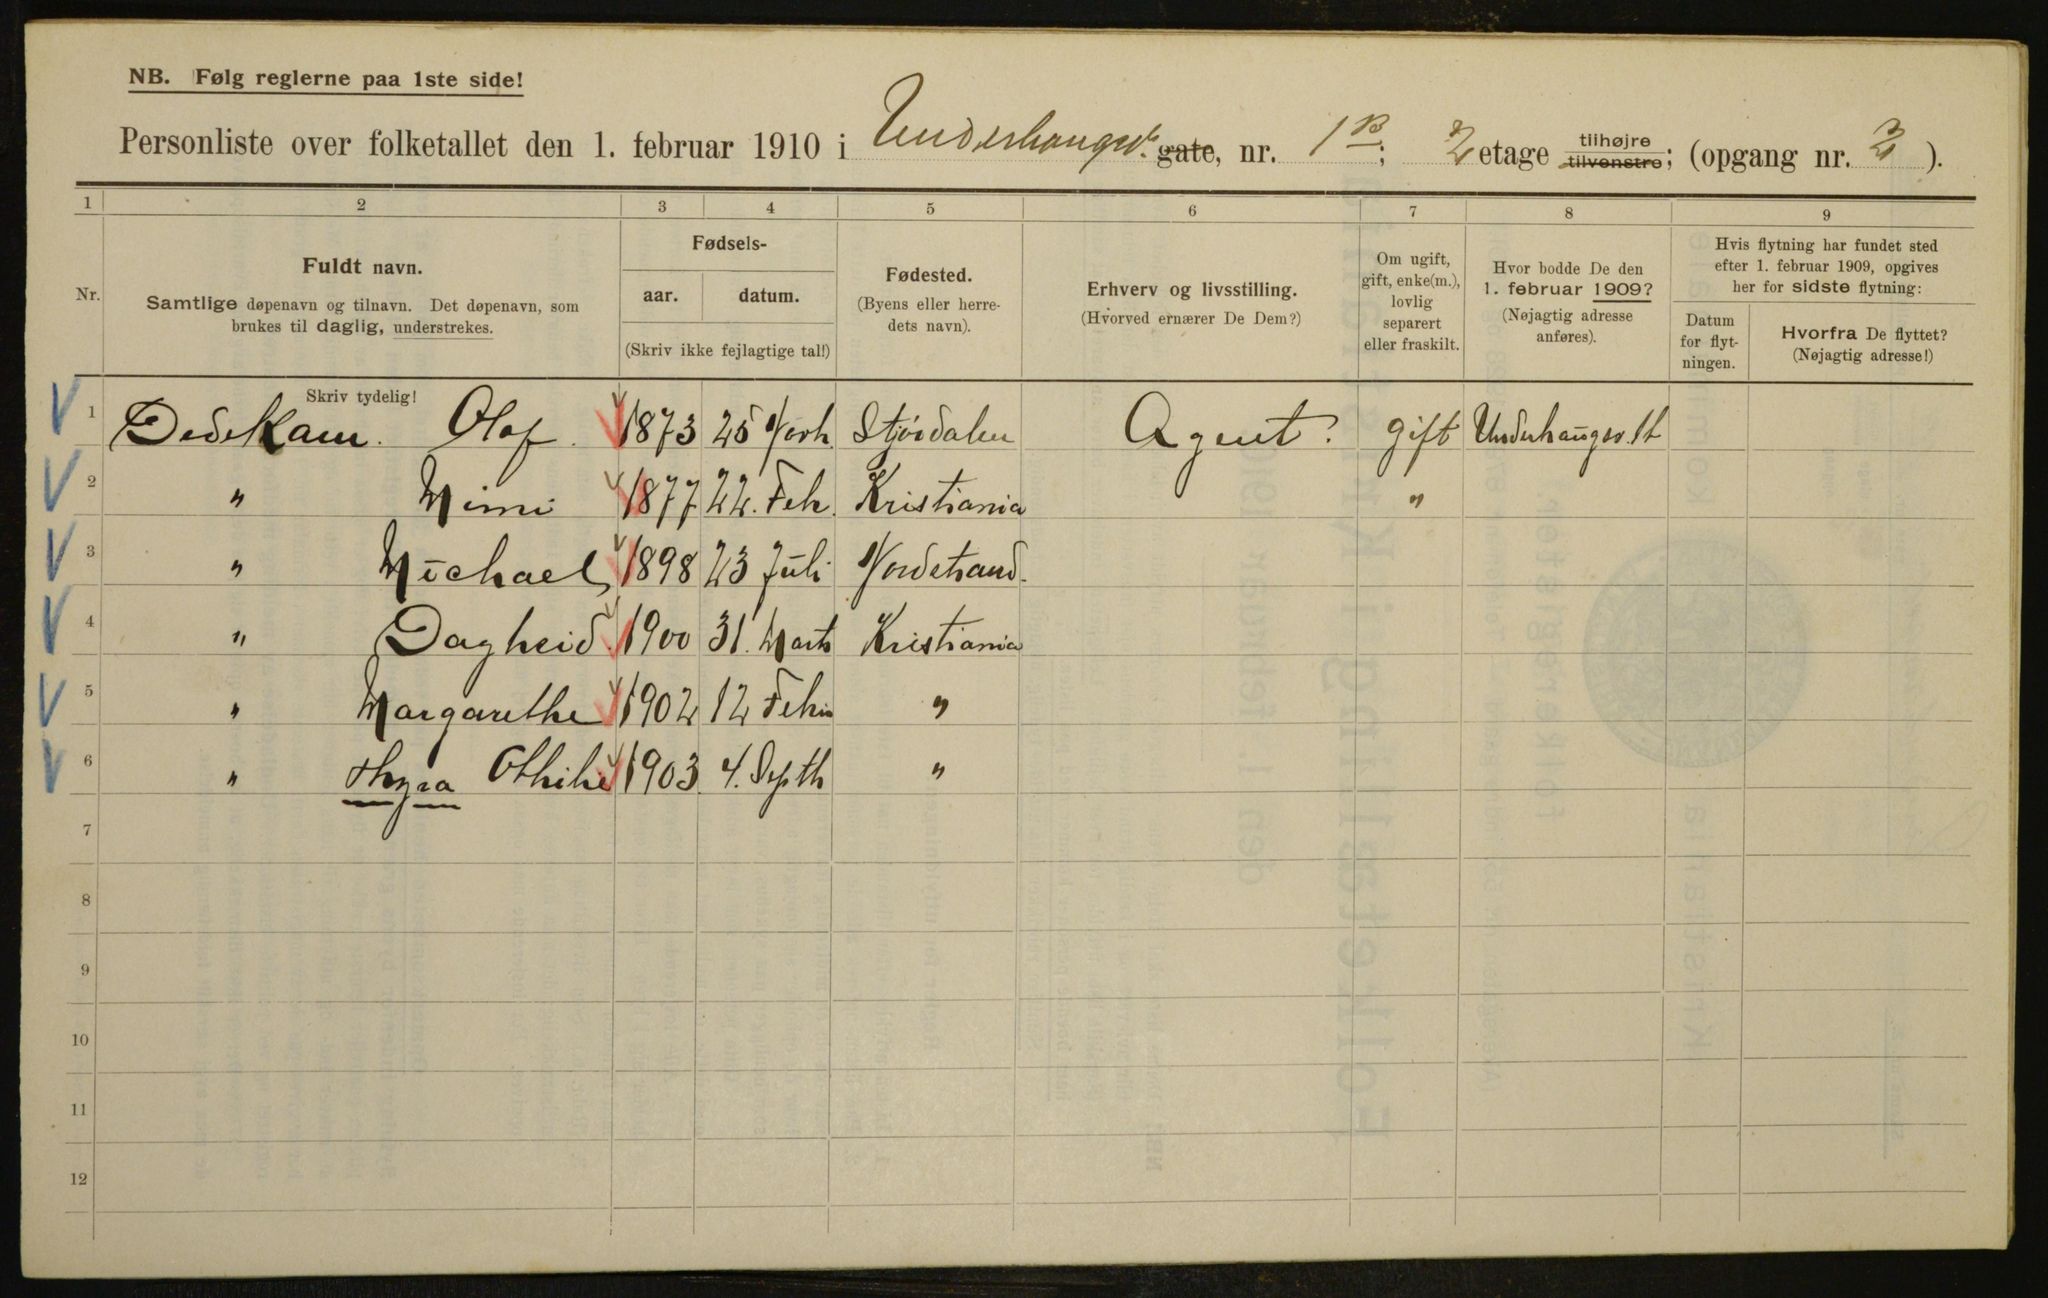 NB. Følg reglerne paa 1ste side!
Personliste over folketallet den 1. februar 1910 i Underhaugsv. gate, nr. 1 B; 2 etage tilhøjre tilvenstre; (opgang nr. 2).
1 2 3 4 5 6 7 8 9
Nr. Fuldt navn. Samtlige døpenavn og tilnavn. Det døpenavn, som brukes til daglig, understrekes.
Fødsels- aar. datum. (Skriv ikke fejlagtige tal!)
Fødested. (Byens eller herredets navn).
Erhverv og livsstilling. (Hvorved ernærer De Dem?)
Om ugift, gift, enke(m.), lovlig separert eller fraskilt.
Hvor bodde De den 1. februar 1909? (Nøjagtig adresse anføres).
Hvis flytning har fundet sted efter 1. februar 1909, opgives her for sidste flytning:
Datum for flytningen. Hvorfra De flyttet? (Nøjagtig adresse!)
Skriv tydelig!
1 Dedekam. Olaf. 1873 25 Stjørdalen Agent. gift Underhaugsv.
2 " Mimi 1877 22. Feb. Kristiania "
3 " Michael 1898 23 Juli Nordstrand.
4 " Dagheid. 1900 31. Marts Kristiania
5 " Margarethe 1902 12 Feb "
6 " Thyra Othilie 1903. 4. Septb "
7
8
9
10
11
12